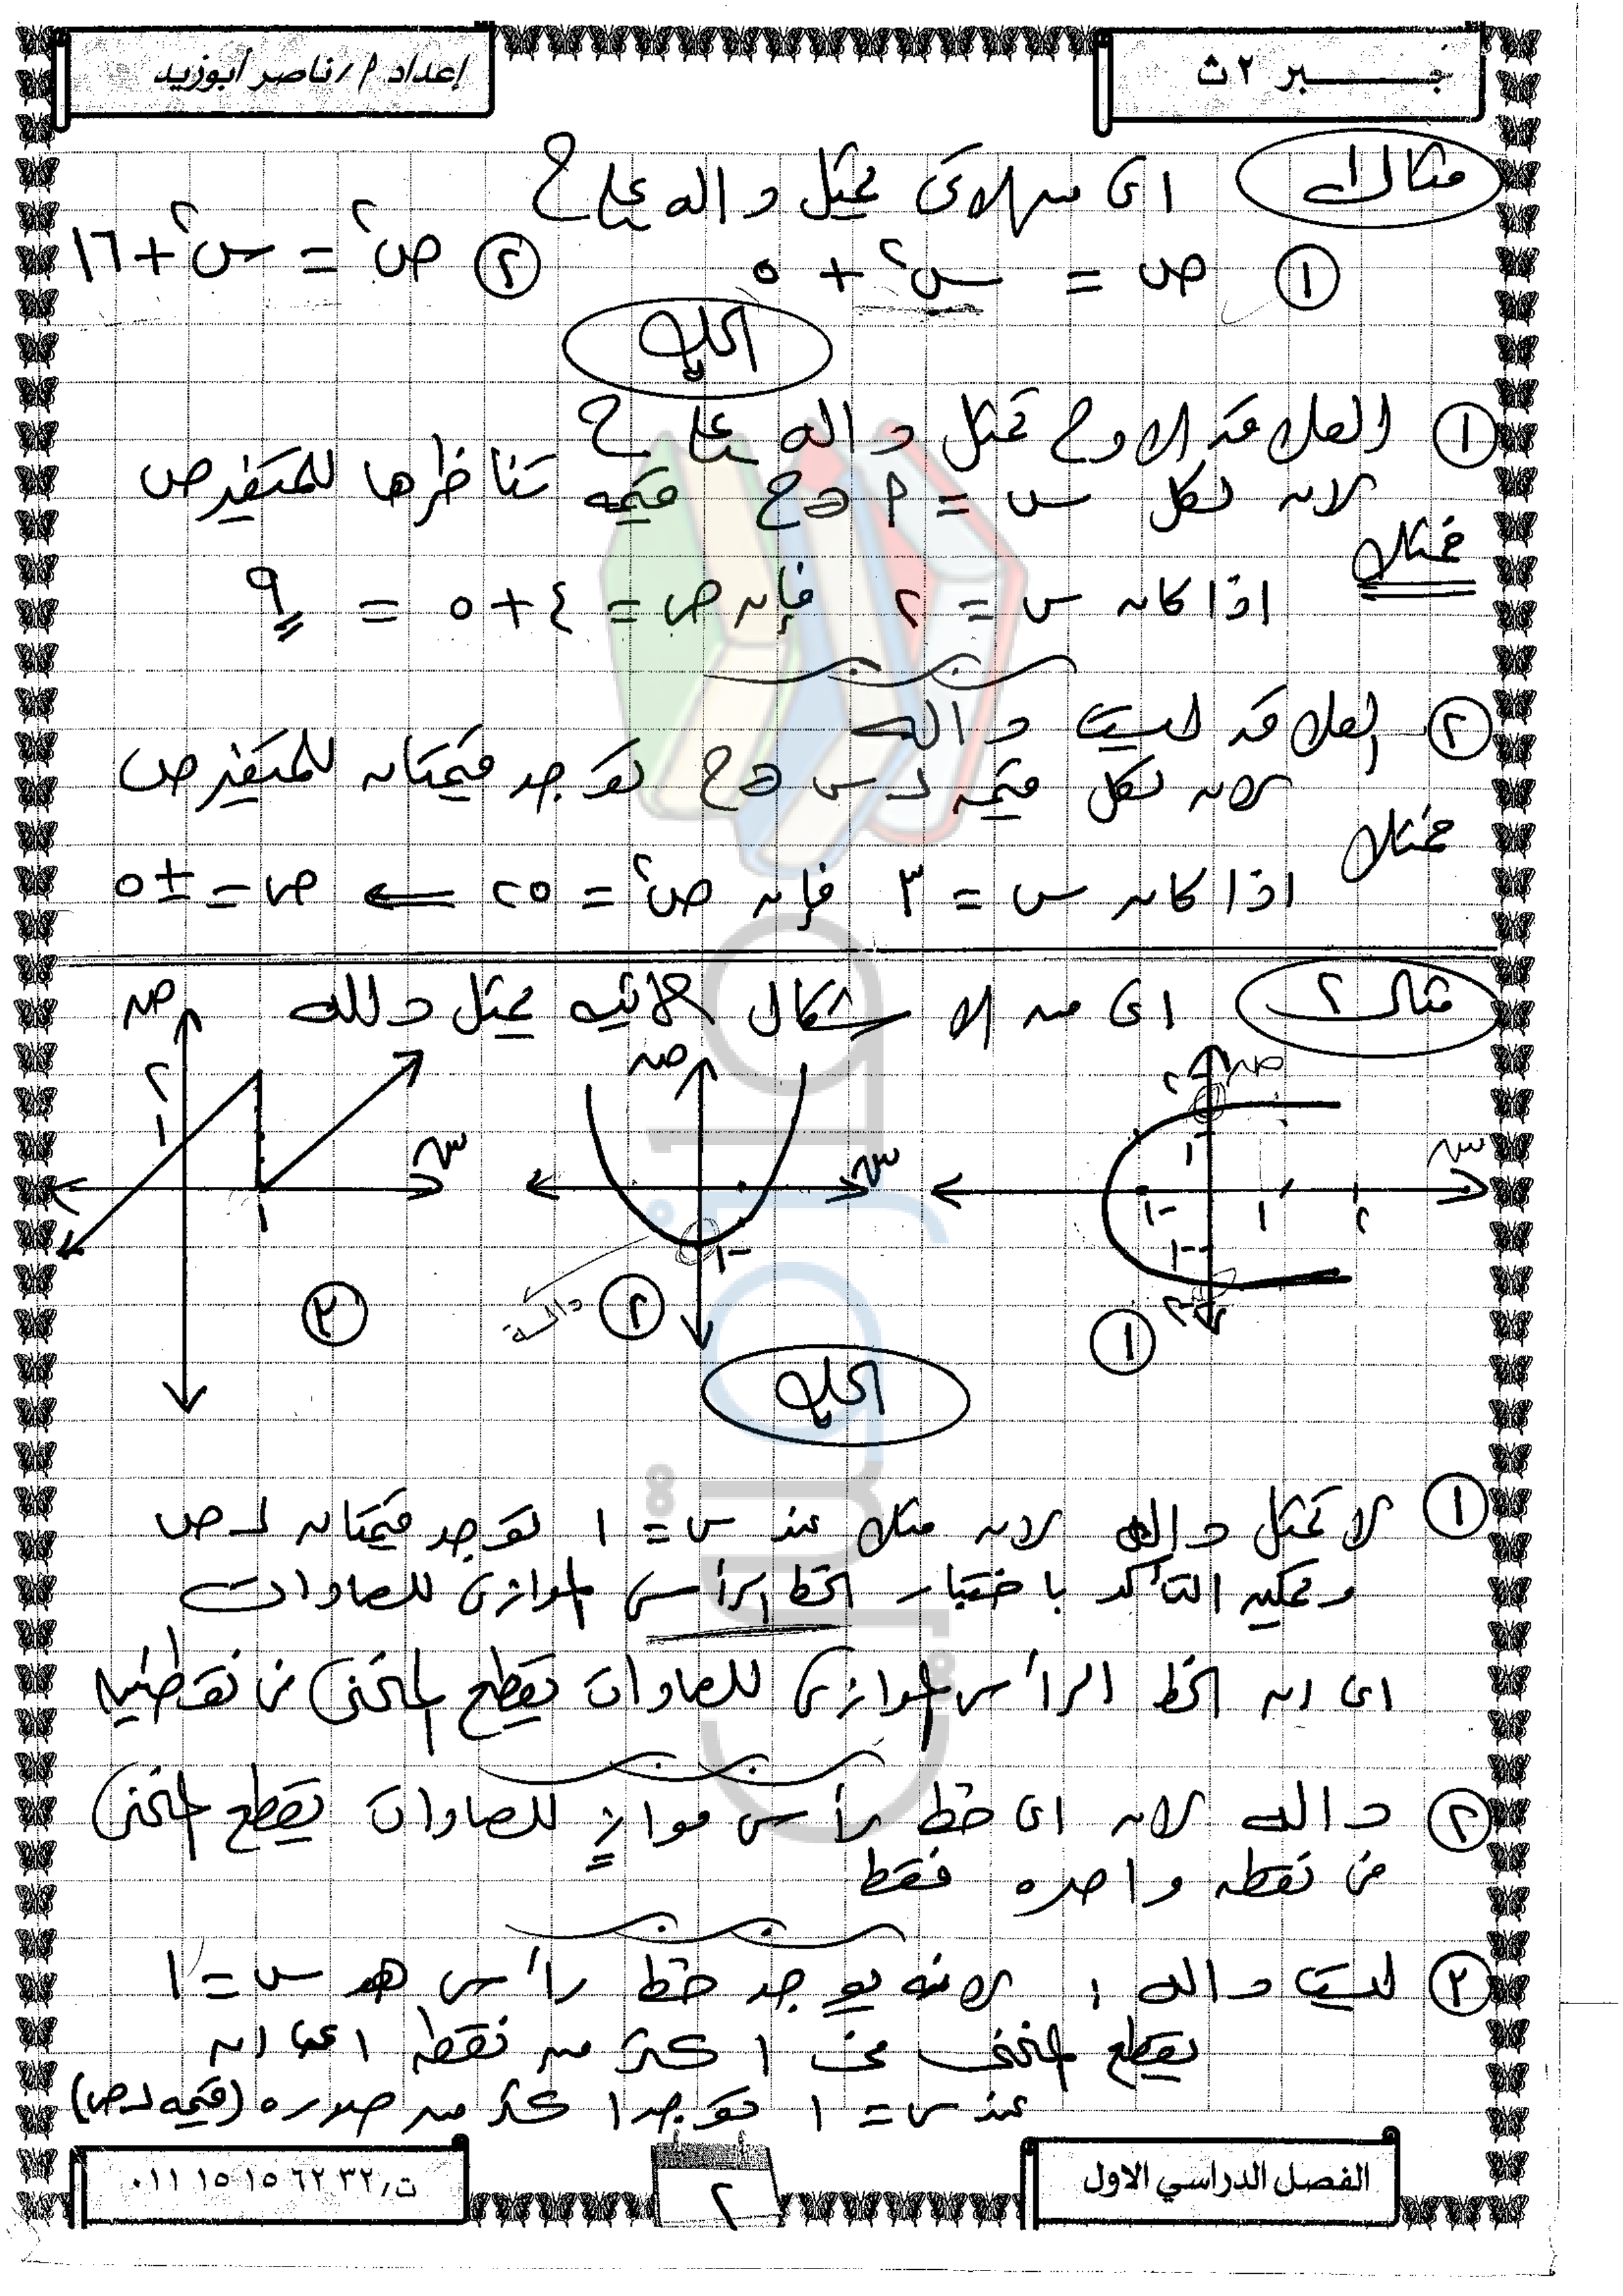 جبر ٢ ث
إعداد أ / ناصر أبوزيد
مثال ١ اى مما يلاتى يمثل داله على ح
① ص = س٢ + ٥ ② ص٢ = س٢ + ١٦
الحل
① العلاقه الاولى تمثل داله على ح
لان لكل س = ٢ ∈ ح قيمه تناظرها للمتغير ص
فمثلا
اذا كان س = ٢ فإن ص = ٤ + ٥ = ٩
② العلاقه ليست داله
لان لكل قيمه لـ س ∈ ح توجد قيمتان للمتغير ص
فمثلا
اذا كان س = ٣ فإن ص٢ = ٢٥ ⟸ ص = ± ٥
مثال ٢ اى من الاشكال الاتيه يمثل دالله
ص س ١ ٢ -١ ١ ٢ -١ -٢ ①
ص س -١ ② دالة
ص س ٢ ١ ١ ③
الحل
① لا تمثل داله لان مثلا عند س = ١ توجد قيمتان لـ ص
ويمكن التأكد باختبار الخط الرأسى الموازى للصادات
اى ان الخط الرأسى الموازى للصادات يقطع المنحنى فى نقطتين
② داله لان اى خط رأسى موازٍ للصادات يقطع المنحنى
فى نقطه واحده فقط
③ ليست داله ، لانه يوجد خط رأسى هو س = ١
يقطع المنحنى فى اكثر من نقطه اى ان
عند س = ١ توجد اكثر من صوره (قيمه لـ ص)
الفصل الدراسي الاول
٢
ت / ٠١١ ١٥ ١٥ ٦٢ ٣٢